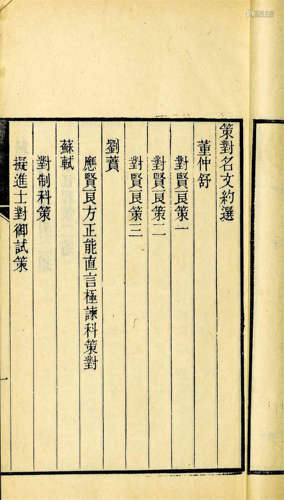 策對名文約選
董仲舒
對賢良策一
對賢良策二
對賢良策三
劉蕡
應賢良方正能直言極諫科策對
蘇軾
對制科策
擬進士對御試策